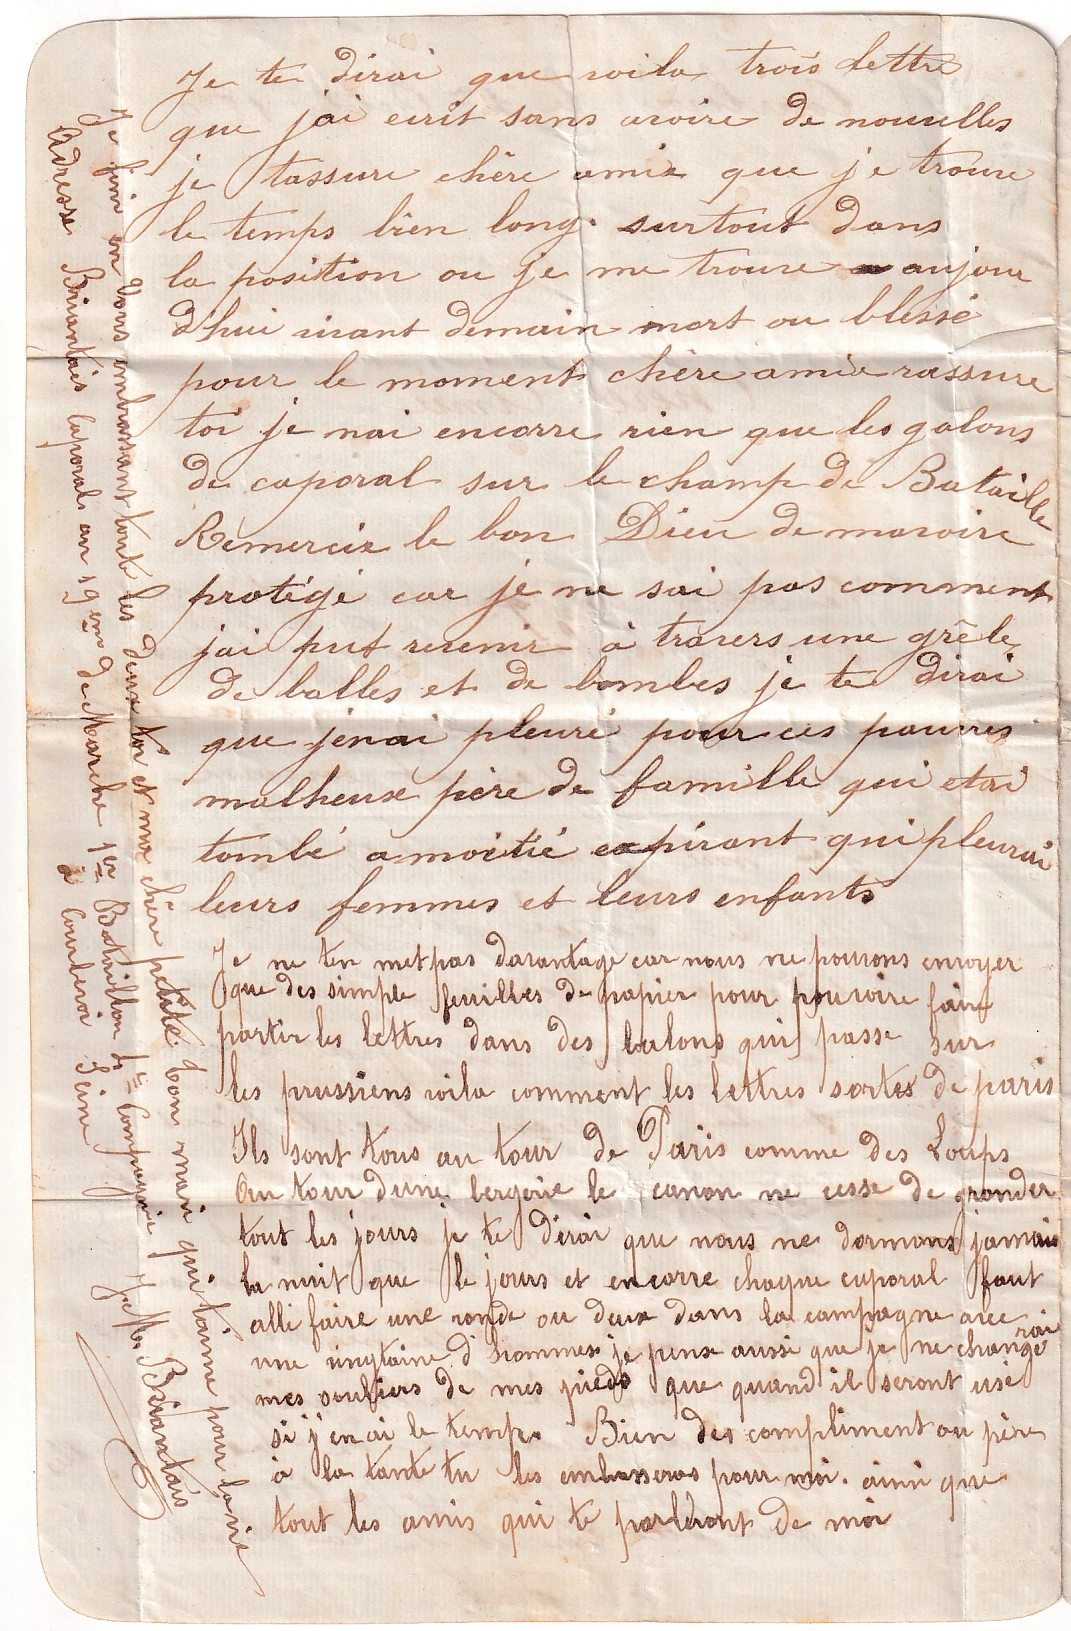 Je te dirai que voila trois lettre
que jai ecrit sans avoire de nouvelles
je tassure chère amie que je trouve
le temps bien long. surtout dans
la position ou je me trouve aujour
d'hui vivant demain mort ou blessé
pour le moment chère amie rassure
toi je nai encorre rien que les galons
de caporal sur le champ de Bataille
Remercie le bon Dieu de mavoire
protégé car je ne sai pas comment
jai put revenir à travers une grêle
de balles et de bombes je te dirai
que jenai pleuré pour ces pauvres
malheux père de famille qui etai
tombé a moitié expirant qui pleurai
leurs femmes et leurs enfants
Je ne ten met pas davantage car nous ne pouvons envoyer
que des simple feuilles de papier pour pouvoire faire
partir les lettres dans des balons qui passe sur
les prussiens voila comment les lettres sortes de paris
Ils sont tous au tour de Paris comme des Loups
Au tour dune bergerie le canon ne cesse de gronder
tout les jours je te dirai que nous ne dormons jamais
la nuit que le jours et encorre chaque caporal faut
allé faire une ronde ou deux dans la campagne avec
une vingtaine d'hommes je pense aussi que je ne changerai
mes souliers de mes pieds que quand il seront usé
si j'enai le temps. Bien des compliment au père
à la tante tu les embrasseras pour moi. ainsi que
tout les amis qui te parleront de moi
Je fini en vous embrassant tout les deux toi et ma chère petite. ton mari qui taime pour la vie
J. M. Briantais
Adresse Briantais Caporal au 19eme de Marche 1er Bataillon 4e Compagnie
à Courbevoi Seine